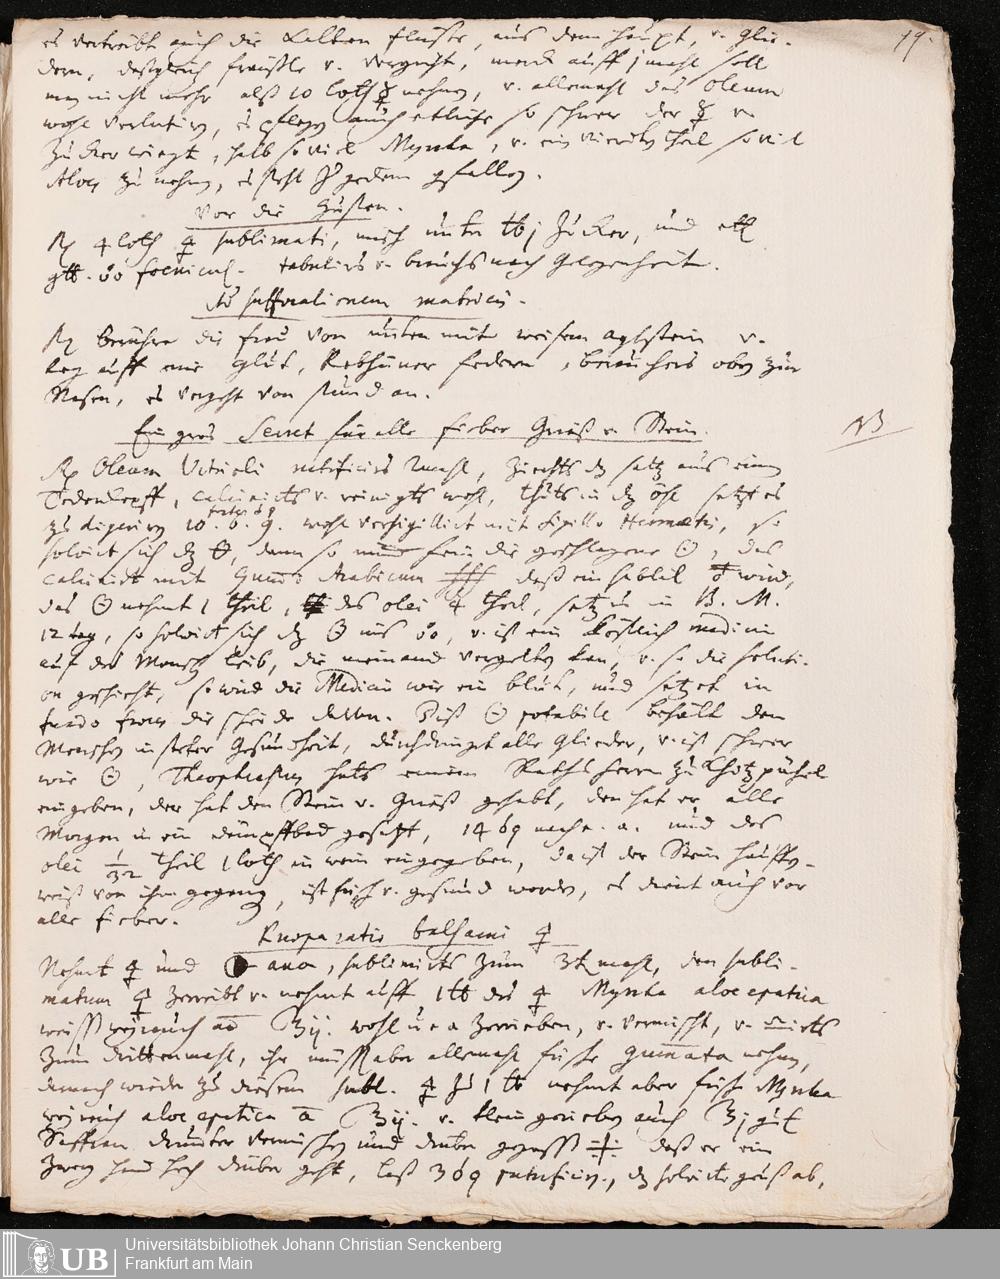 19.
es vertreibt auch die kalten flüsse, aus dem haupt, v. glie-
dern, desgleich v. vergicht, merck auff 1 mahl soll
man nicht mehr alß 10 loth 🜍 nehmen, v. allemahl das Oleum
wohl verlutiren, es pflegen auch etliche so schwer der 🜍 v.
Zucker wiegt, halb so viel Myrrha, v. ein viertes theil so viel
Aloes zu nehmen, es steht jedem gefallen.
Vor die Husten.
℞ 4 loth 🜍 sublimati, misch unter ℔ j Zucker, und etl
gtt. foenicul. tabulirs v. brauchs nach gelegenheit.
Ad suffocationem matricis.
℞ beruhre die frau von unten mit weisem agtstein v.
leg auff eine glut, Rebhüner federn, beräuchers oben zur
Nasen, es vergeht von stund an.
Ein gros Secret für alle fieber Grieß v. Stein.
NB
℞ Oleum Vitrioli rectificirs 2 mahl, ziehts dz saltz aus einem
Todenkopff, calcinirts v. reinigts wohl, thuts in dz öhl setzt es
zu digeriren 10. 6. 9. wohl versigillirt mit Sigillo Hermetis, so
solvirt sich dz 🜔, dann so nim fein die geschlagene ☉, das
calcinirt mit Gummi Arabicum daß ein subtil wird,
das ☉ nehmt 1 theil, des olei 4 theil, setz es in B. M.
12 tag, so solvirt sich dz ☉ ins, v. ist ein köstlich medicin
auf des Mensch leib, die niemand vergelten kan, v. so die soluti-
on geschicht, so wird die Medicin wie ein blut, und setzet in
fundo die scheide davon. Diß ☉ potabile behält den
Menschen in steter gesundheit, durchdringet alle glieder, v. ist schwer
wie ☉, Theophrastus hats einem Rathsherrn zu
eingeben, der hat den Stein v. Grieß gehabt, den hat er alle
Morgen in ein dämpffbad gesetzt, 14 tag nach. a. und des
olei 1/32 theil 1 loth in wein eingegeben, da ist der Stein hauffen-
weiß von ihm gegangen, ist frisch v. gesund worden, es dient auch vor
alle fieber.
Praeparatio balsami 🜍
Nehmt 🜍 und ana, sublimirts zum 3t mahl, den subli-
matum 🜍 zerreibt v. nehmt auff 1 ℔ des 🜍 Myrrha aloe epatica
weissweyrauch an ʒij. wohl zerrieben, v. vermischt, v. ♎irts
zum drittenmahl, ihr müsst aber allemahl frische gummata nehmen,
darnach wieder zu diesem subl. 🜍 zu 1 ℔ nehmt aber frische Myrrha
weyrauch aloe epatica a ʒij. v. klein gerieben auch ʒj gut
Saffran drunter vermischen und drüber gegossen daß er ein
zwerg hand hoch drüber geht, laß 3 tag putrificiren, dz solvirte gieß ab,
Universitätsbibliothek Johann Christian Senckenberg
Frankfurt am Main
UB